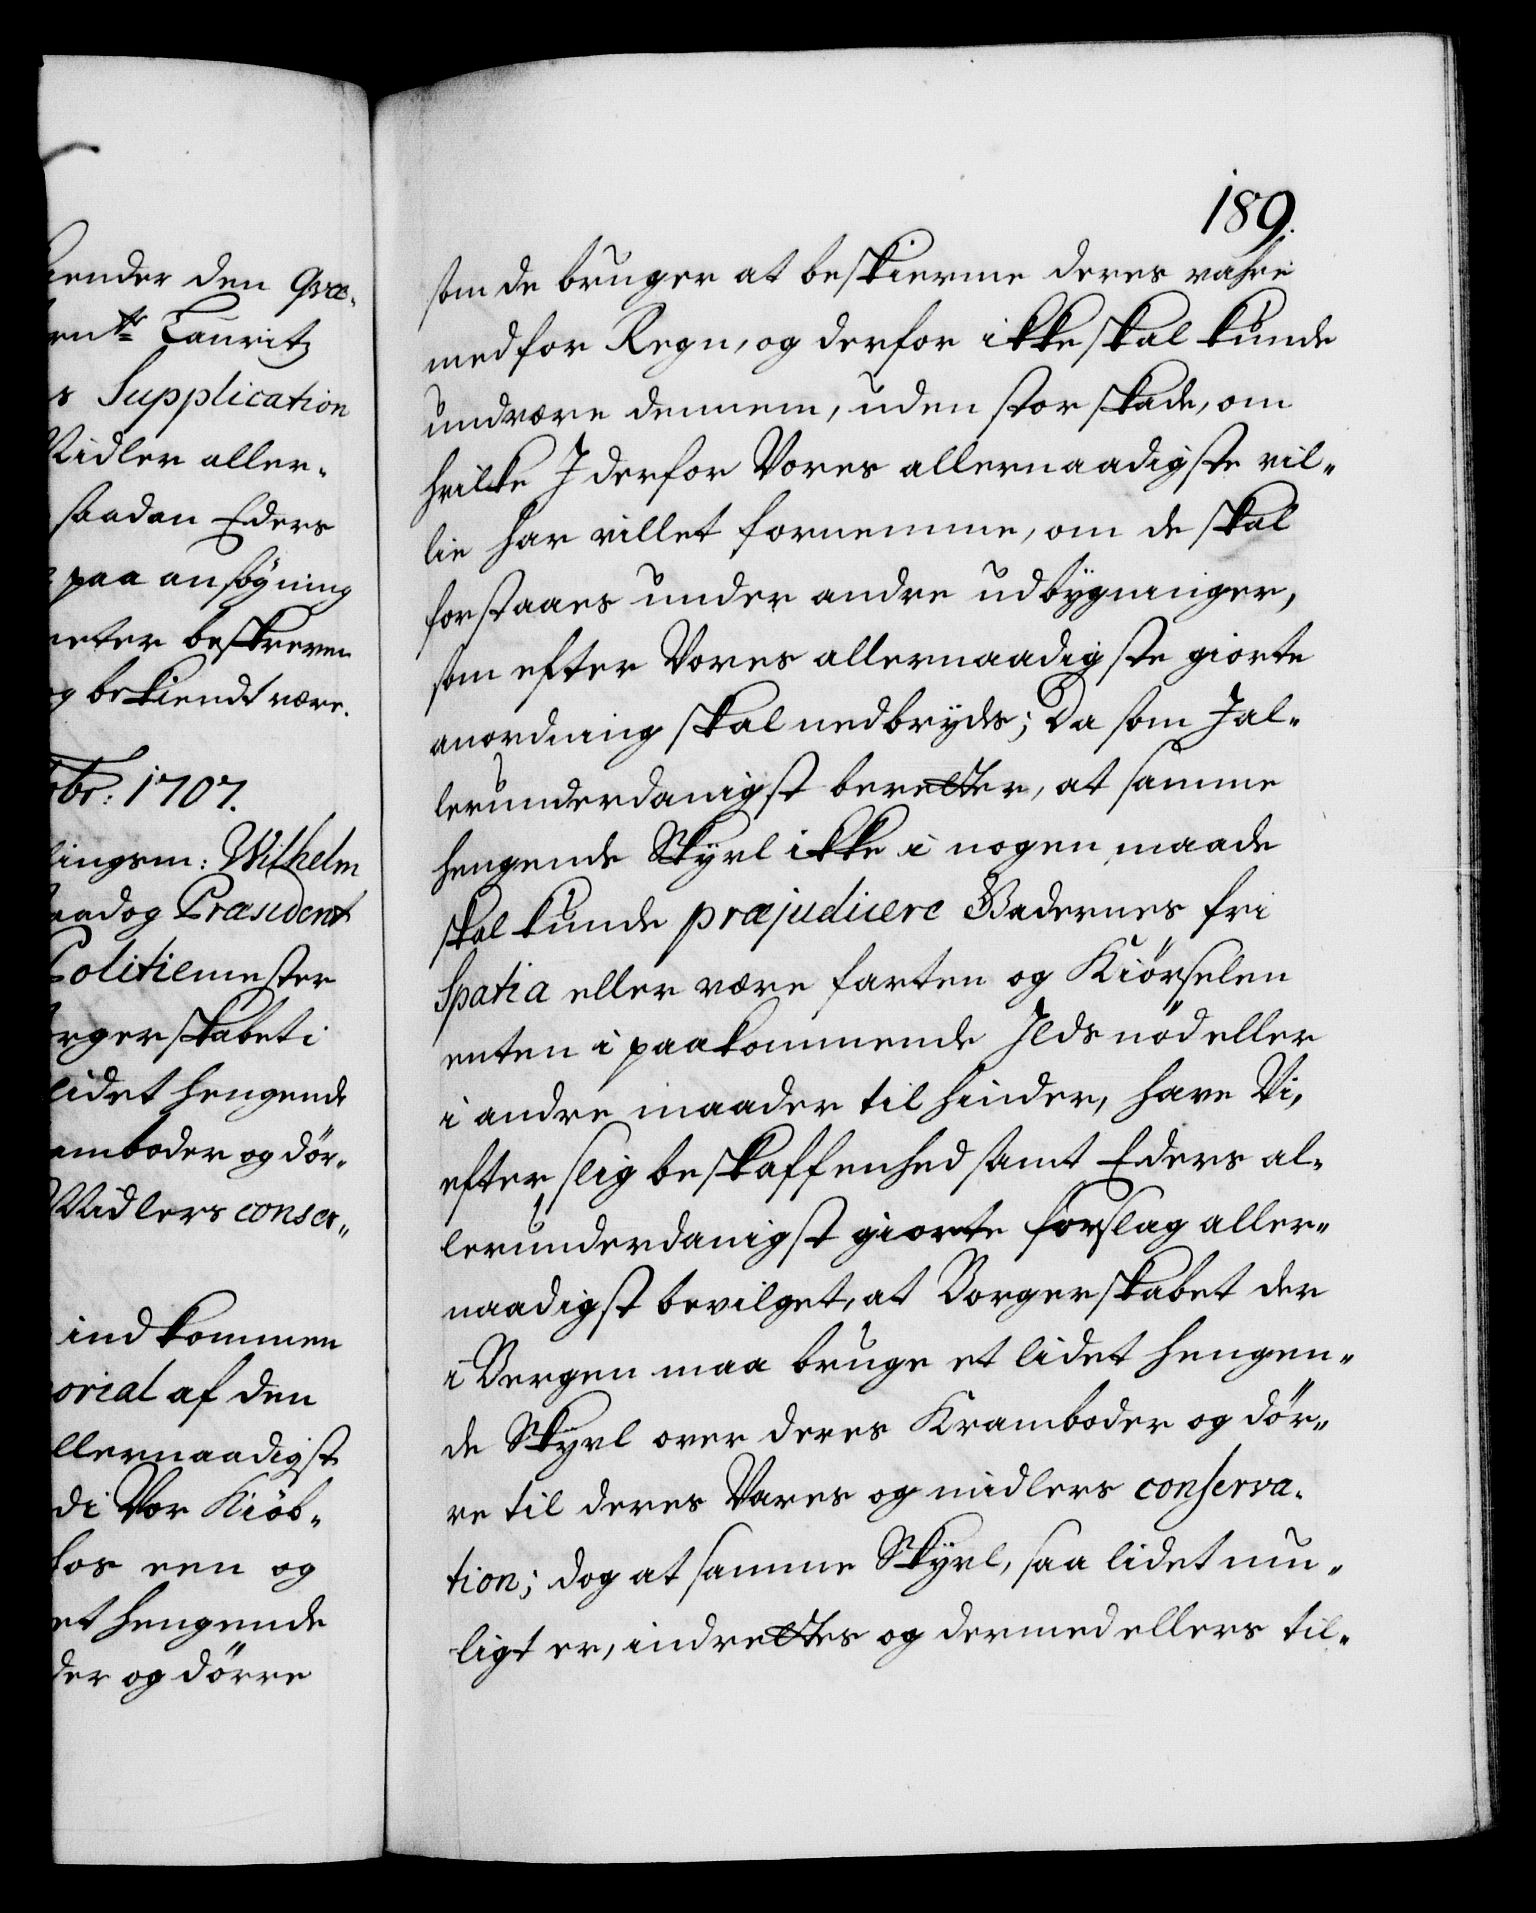 kiender den Qvæ-
Lauritz
s Supplication
Midler aller-
saadan Eders
paa ansøgning
beskreven
og bekiendt være.
1707.
lingsm: Wilhelm
raad og Præsident
Politiemester
orgerskabet i
lidet hengende
amboder og dör-
Midlers conser-
ind kommen
orial af den
llernaadigst
di Vor Kiöb-
hos een og
et hengende
der og dörre
189.
som de bruger at beskierme deres vahre
med for Regn, og derfor ikke skal kunde
undvære dennem, uden stor skade, om
hvilke I derfor Vores allernaadigste vil-
lie har villet fornemme, om de skal
forstaaes under andre udbygninger,
som efter Vores allernaadigste giorte
anordning skal nedbryds; Da som I al-
lerunderdanigst beretter, at samme
hengende Skyvl ikke i nogen maade
skal kunde præjudicere Gadernes fri
Spatia eller være farten og Kiörselen
enten i paakommende Ilds nöd eller
i andre maader til hinder, have Vi,
efter slig beskaffenhed samt Eders al-
lerunderdanigst giorte forslag aller-
naadigst bevilget, at Borgerskabet der
i Bergen maa bruge et lidet hengen-
de Skyvl over deres Kramboder og dör-
re til deres Vares og midlers conserva-
tion; dog at samme Skyvl, saa lidet mu-
ligt er, indrettes og dermed ellers til-